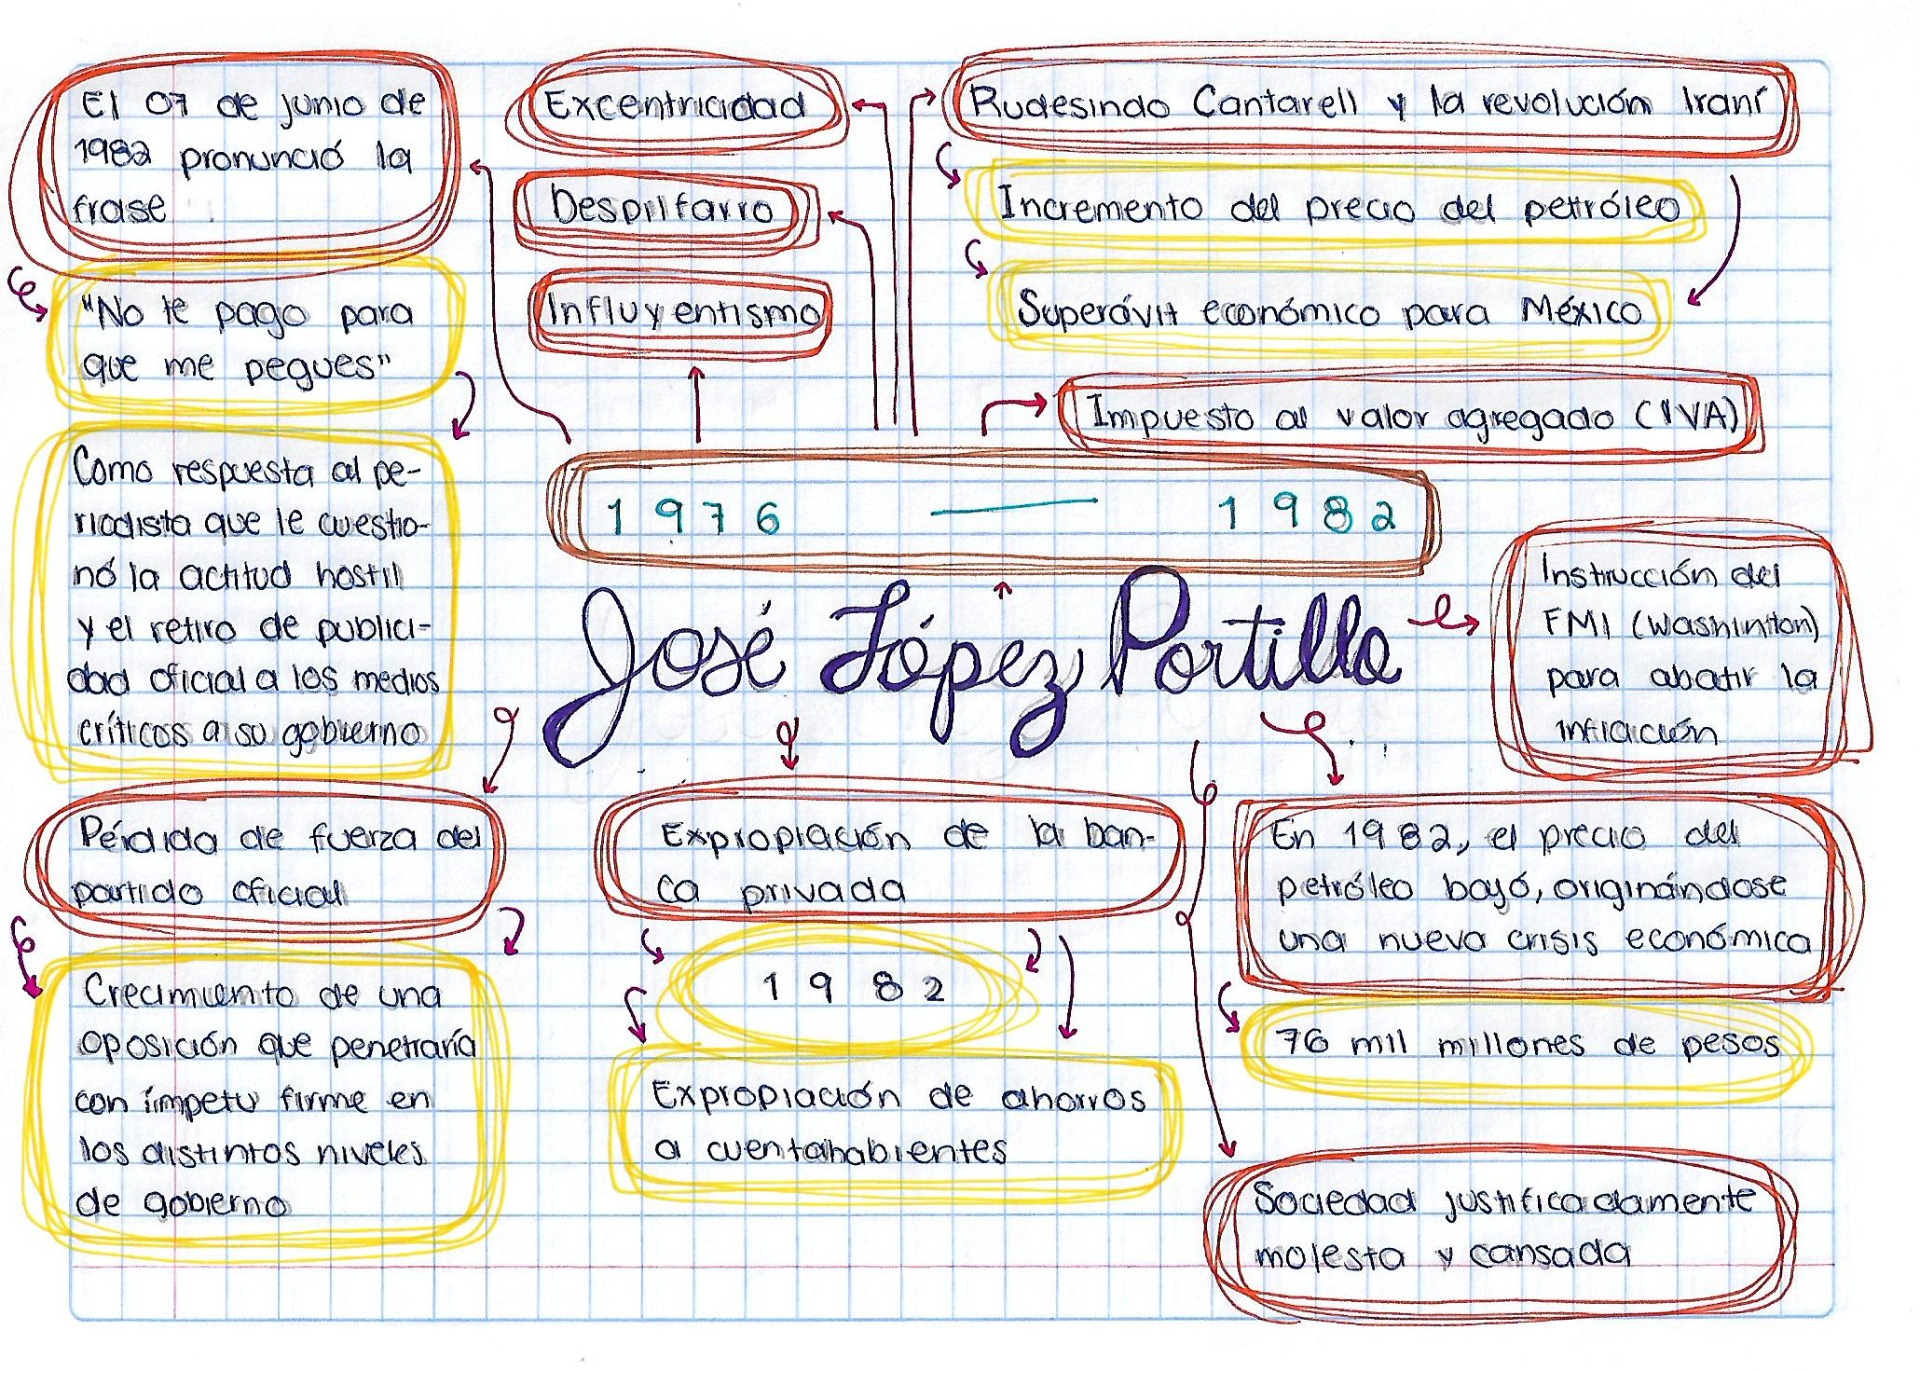 El 07 de junio de
1982 pronunció la
frase
"No te pago para
que me pegues"
Como respuesta al pe-
riodista que le cuestio-
nó la actitud hostil
y el retiro de publici-
dad oficial a los medios
críticos a su gobierno
Excentricidad
Despilfarro
Influyentismo
Rudesindo Cantarell y la revolución Iraní
Incremento del precio del petróleo
Superávit económico para México
Impuesto al valor agregado (IVA)
1976 — 1982
José López Portillo
Instrucción del
FMI (Washinton)
para abatir la
inflación
Pérdida de fuerza del
partido oficial
Crecimiento de una
oposición que penetraría
con ímpetu firme en
los distintos niveles
de gobierno
Expropiación de la ban-
ca privada
1982
Expropiación de ahorros
a cuentahabientes
En 1982, el precio del
petróleo bajó, originándose
una nueva crisis económica
76 mil millones de pesos
Sociedad justificadamente
molesta y cansada